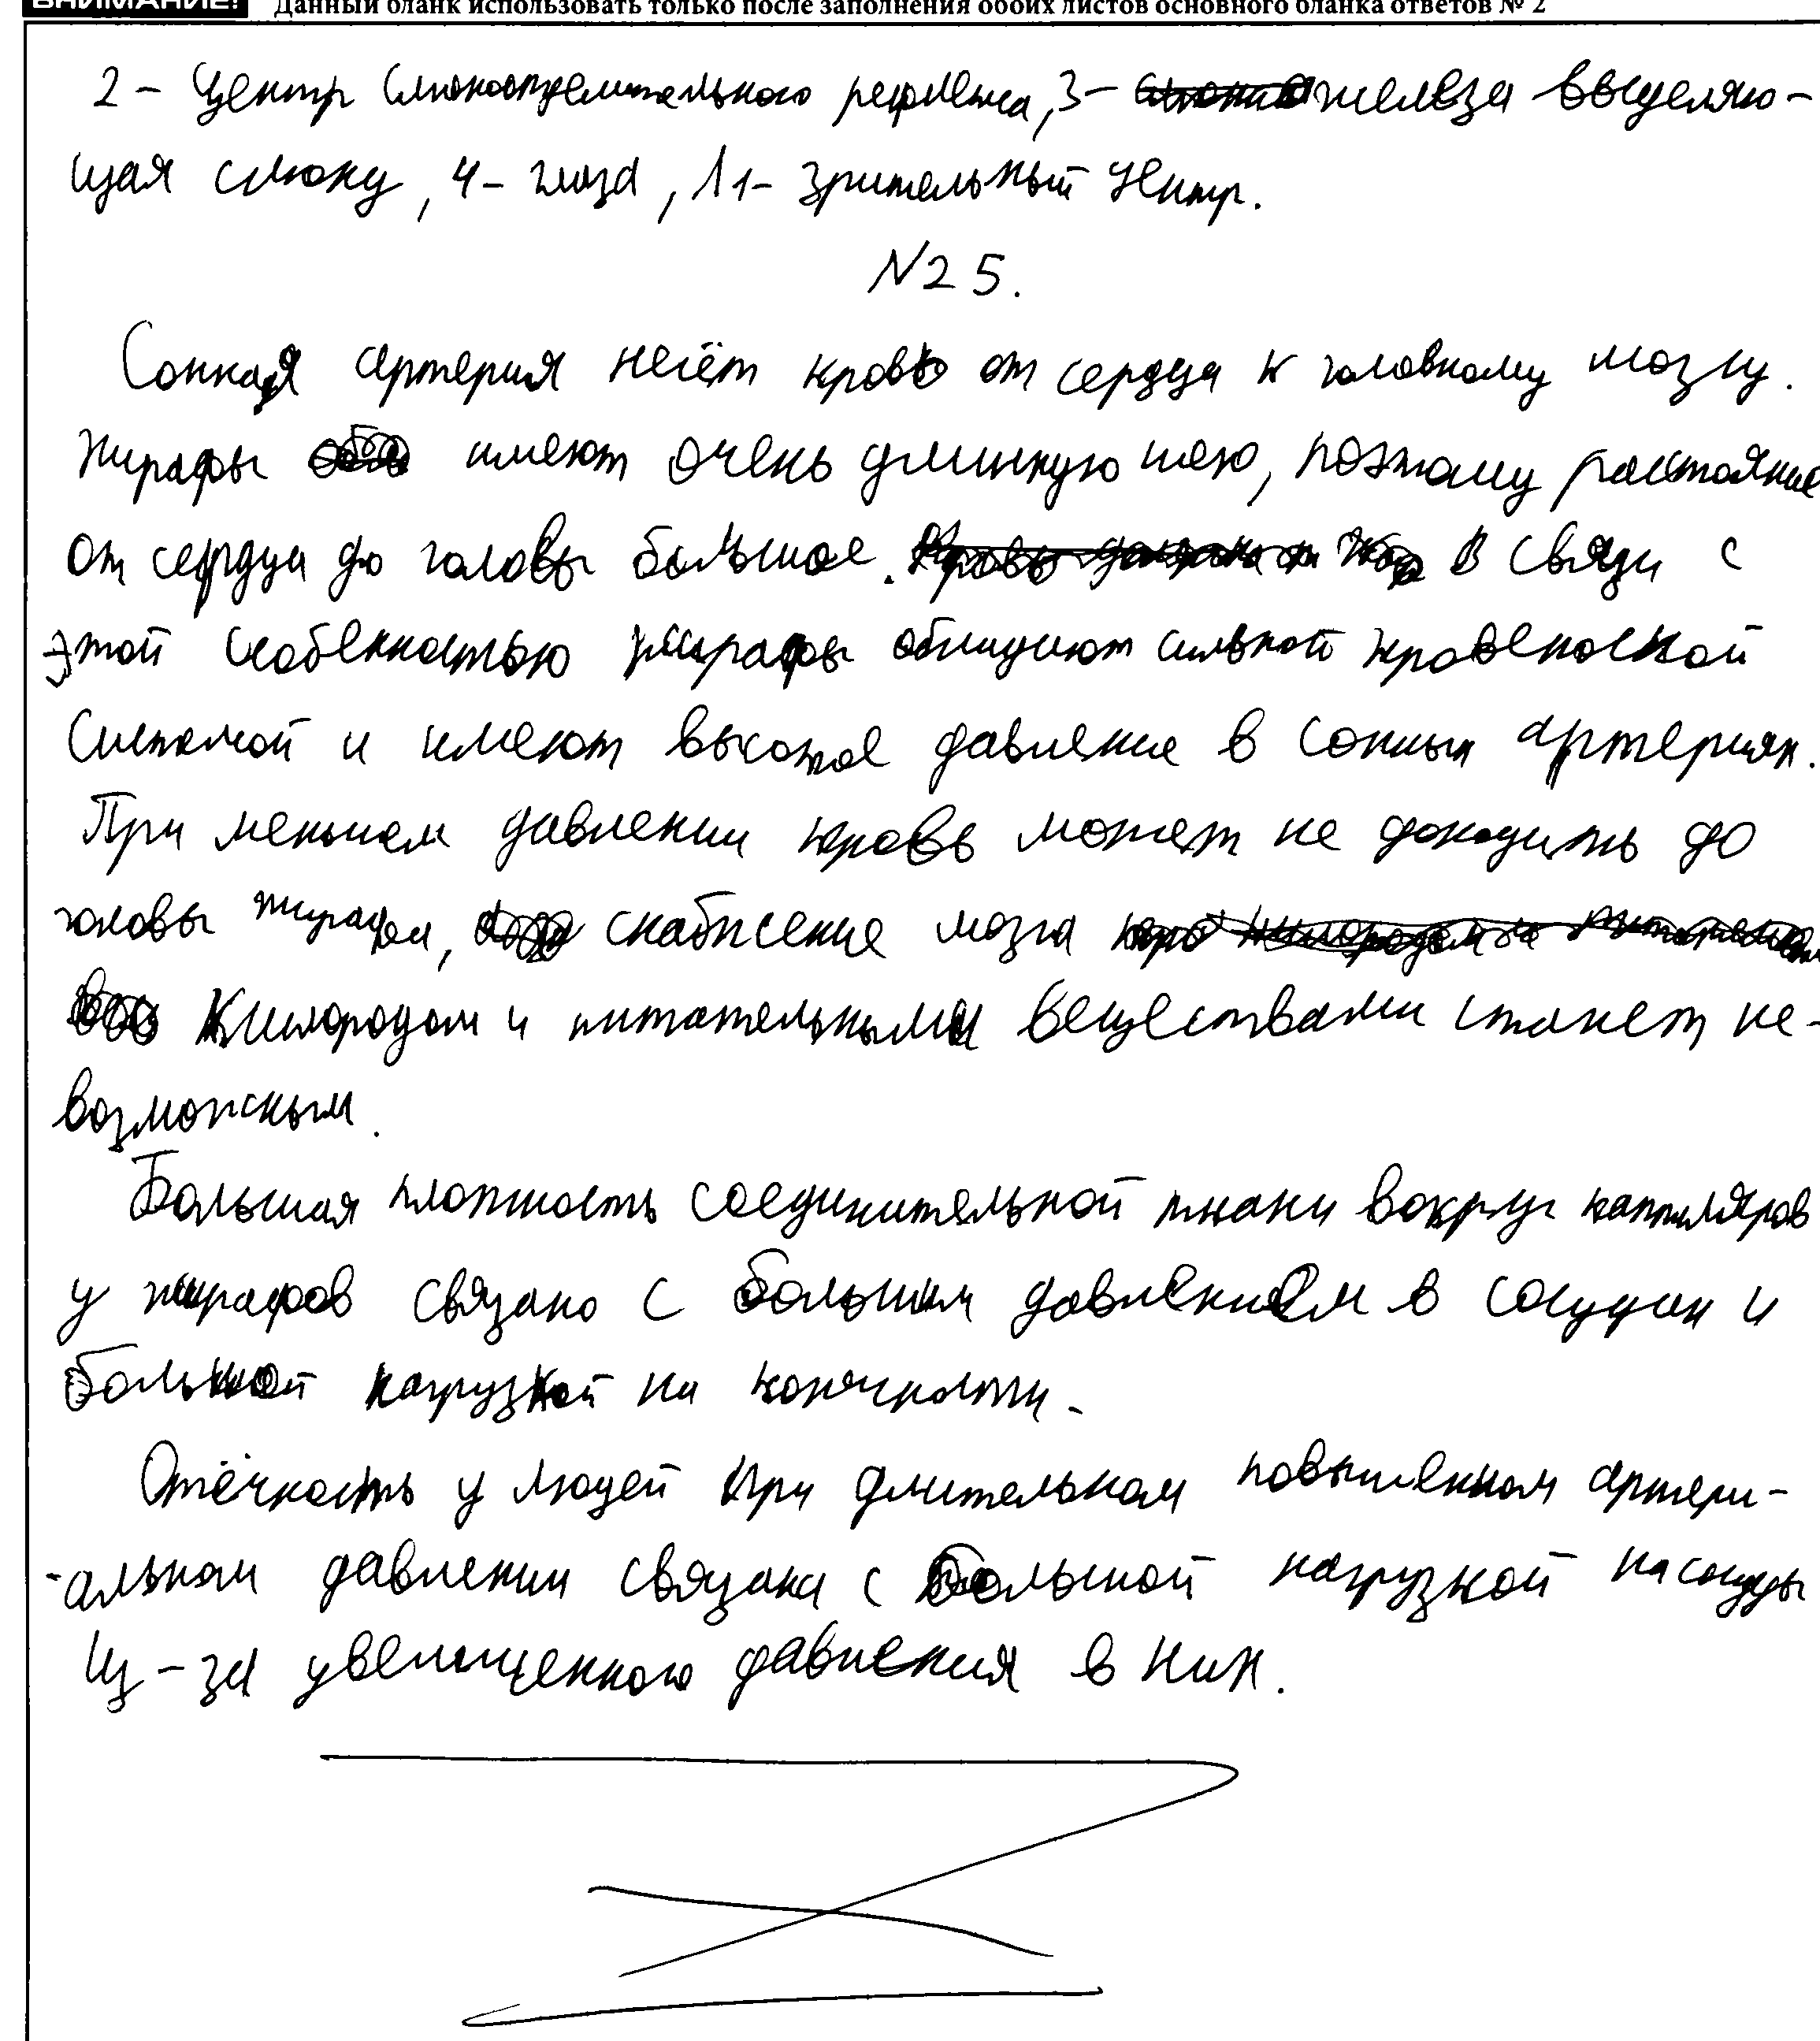 ВНИМАНИЕ! Данный бланк использовать только после заполнения обоих листов основного бланка ответов № 2
2 - Центр рефлекса, 3 - железа выделяю-
щая слюну, 4 - глаза, 11 - зрительный центр.
№25.
Сонная артерия несёт кровь от сердца к головному мозгу.
Жирафы имеют очень длинную шею, поэтому расстояние
от сердца до головы большое. В связи с
этой особенностью жирафы обладают сильной кровеносной
системой и имеют высокое давление в сонных артериях.
При меньшем давлении кровь может не доходить до
головы жирафа, снабжение мозга
кислородом и питательными веществами станет не-
возможным.
Большая плотность соединительной ткани вокруг капилляров
у жирафов связано с большим давлением в сосудах и
большой нагрузкой на конечности.
Отёчность у людей при длительном повышенном артери-
-альном давлении связана с большой нагрузкой на сосуды
из-за увеличенного давления в них.